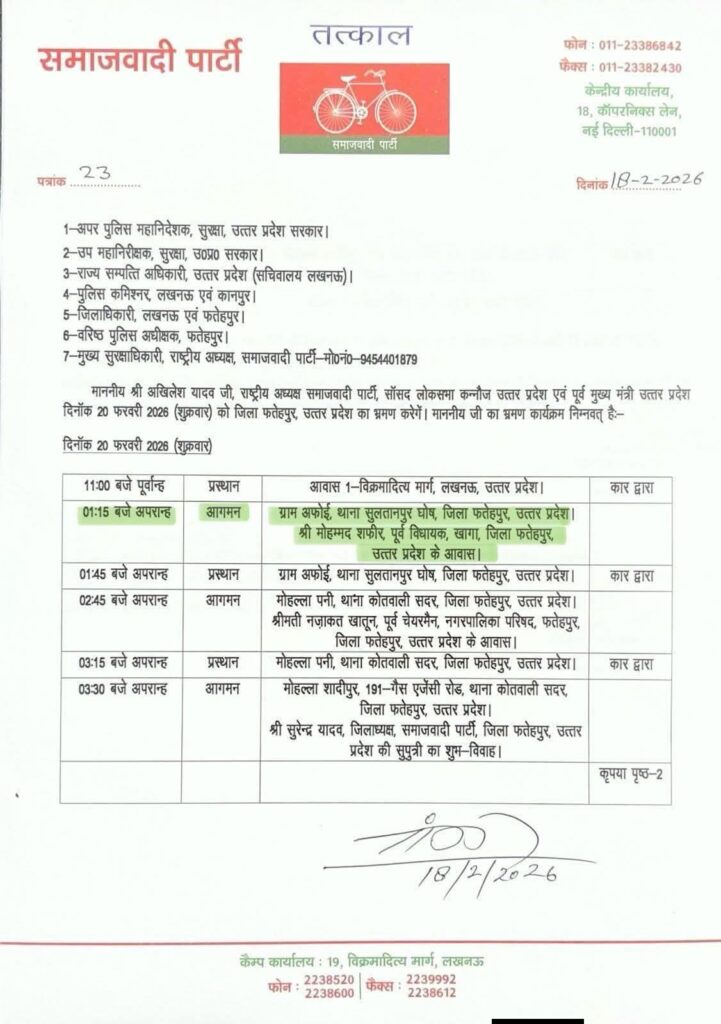 तत्काल
समाजवादी पार्टी
समाजवादी पार्टी
फोन : 011-23386842
फैक्स : 011-23382430
केन्द्रीय कार्यालय,
18, कॉपरनिक्स लेन,
नई दिल्ली-110001
पत्रांक 23
दिनांक 18-2-2026
1-अपर पुलिस महानिदेशक, सुरक्षा, उत्तर प्रदेश सरकार।
2-उप महानिरीक्षक, सुरक्षा, उ0प्र0 सरकार।
3-राज्य सम्पत्ति अधिकारी, उत्तर प्रदेश (सचिवालय लखनऊ)।
4-पुलिस कमिश्नर, लखनऊ एवं कानपुर।
5-जिलाधिकारी, लखनऊ एवं फतेहपुर।
6-वरिष्ठ पुलिस अधीक्षक, फतेहपुर।
7-मुख्य सुरक्षाधिकारी, राष्ट्रीय अध्यक्ष, समाजवादी पार्टी-मो0नं0-9454401879
माननीय श्री अखिलेश यादव जी, राष्ट्रीय अध्यक्ष समाजवादी पार्टी, सॉसद लोकसभा कन्नौज उत्तर प्रदेश एवं पूर्व मुख्य मंत्री उत्तर प्रदेश
दिनॉक 20 फरवरी 2026 (शुक्रवार) को जिला फतेहपुर, उत्तर प्रदेश का भ्रमण करेगें। माननीय जी का भ्रमण कार्यक्रम निम्नवत् है:-
दिनॉक 20 फरवरी 2026 (शुक्रवार)
11:00 बजे पूर्वान्ह प्रस्थान आवास 1-विक्रमादित्य मार्ग, लखनऊ, उत्तर प्रदेश। कार द्वारा
01:15 बजे अपरान्ह आगमन ग्राम अफोई, थाना सुलतानपुर घोष, जिला फतेहपुर, उत्तर प्रदेश।
श्री मोहम्मद शफीर, पूर्व विधायक, खागा, जिला फतेहपुर,
उत्तर प्रदेश के आवास।
01:45 बजे अपरान्ह प्रस्थान ग्राम अफोई, थाना सुलतानपुर घोष, जिला फतेहपुर, उत्तर प्रदेश। कार द्वारा
02:45 बजे अपरान्ह आगमन मोहल्ला पनी, थाना कोतवाली सदर, जिला फतेहपुर, उत्तर प्रदेश।
श्रीमती नज़ाकत खातून, पूर्व चेयरमैन, नगरपालिका परिषद, फतेहपुर,
जिला फतेहपुर, उत्तर प्रदेश के आवास।
03:15 बजे अपरान्ह प्रस्थान मोहल्ला पनी, थाना कोतवाली सदर, जिला फतेहपुर, उत्तर प्रदेश। कार द्वारा
03:30 बजे अपरान्ह आगमन मोहल्ला शादीपुर, 191-गैस एजेंसी रोड, थाना कोतवाली सदर,
जिला फतेहपुर, उत्तर प्रदेश।
श्री सुरेन्द्र यादव, जिलाध्यक्ष, समाजवादी पार्टी, जिला फतेहपुर, उत्तर
प्रदेश की सुपुत्री का शुभ-विवाह।
कृपया पृष्ठ-2
18/2/2026
कैम्प कार्यालय : 19, विक्रमादित्य मार्ग, लखनऊ
फोन : 2238520 फैक्स : 2239992
2238600 2238612